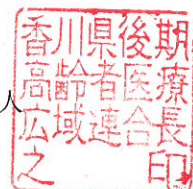 香川県後期
高齢者医療
広域連合長
之印